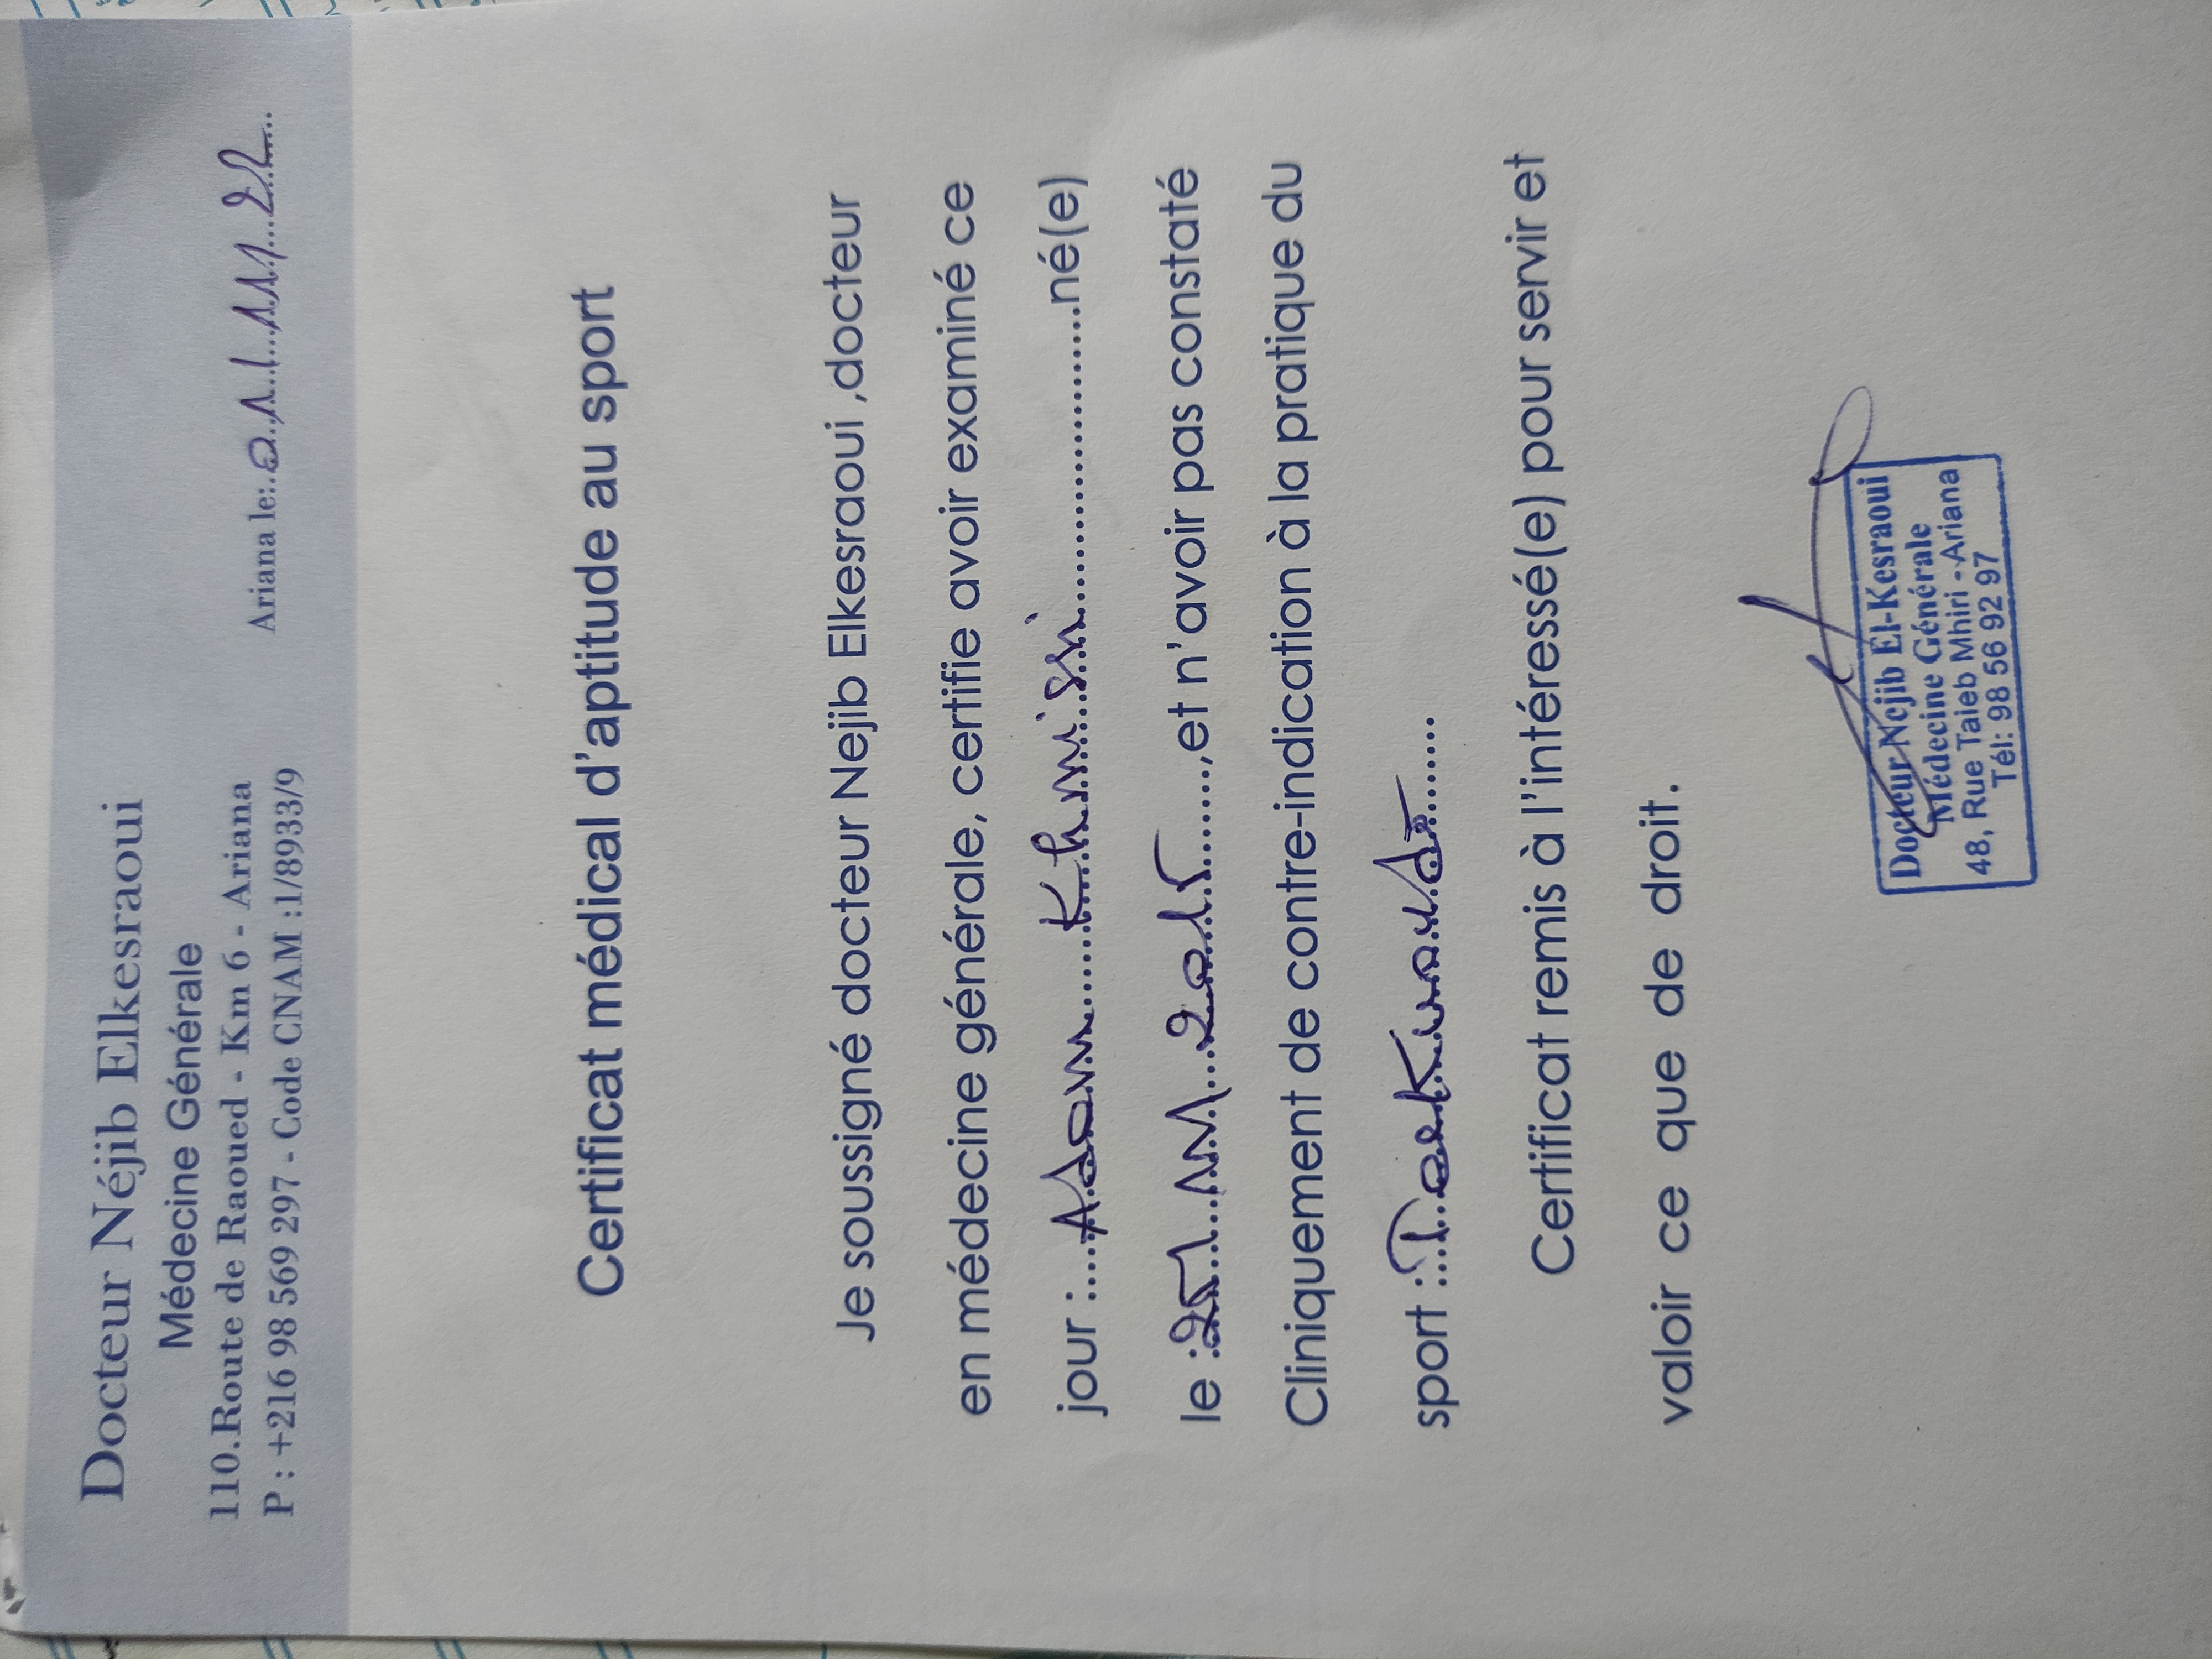 Docteur Néjib Elkesraoui
Médecine Générale
110.Route de Raoued - Km 6 - Ariana
P : +216 98 569 297 - Code CNAM :1/8933/9
Ariana le:..01/11/22...
Certificat médical d'aptitude au sport
Je soussigné docteur Nejib Elkesraoui ,docteur
en médecine générale, certifie avoir examiné ce
jour :....Adam......Khmissi........................né(e)
le :25/11/2015.......,et n'avoir pas constaté
Cliniquement de contre-indication à la pratique du
sport :..Taekwondo.......
Certificat remis à l'intéressé(e) pour servir et
valoir ce que de droit.
Docteur Nejib El-Kesraoui
Médecine Générale
48, Rue Taieb Mhiri - Ariana
Tél: 98 56 92 97